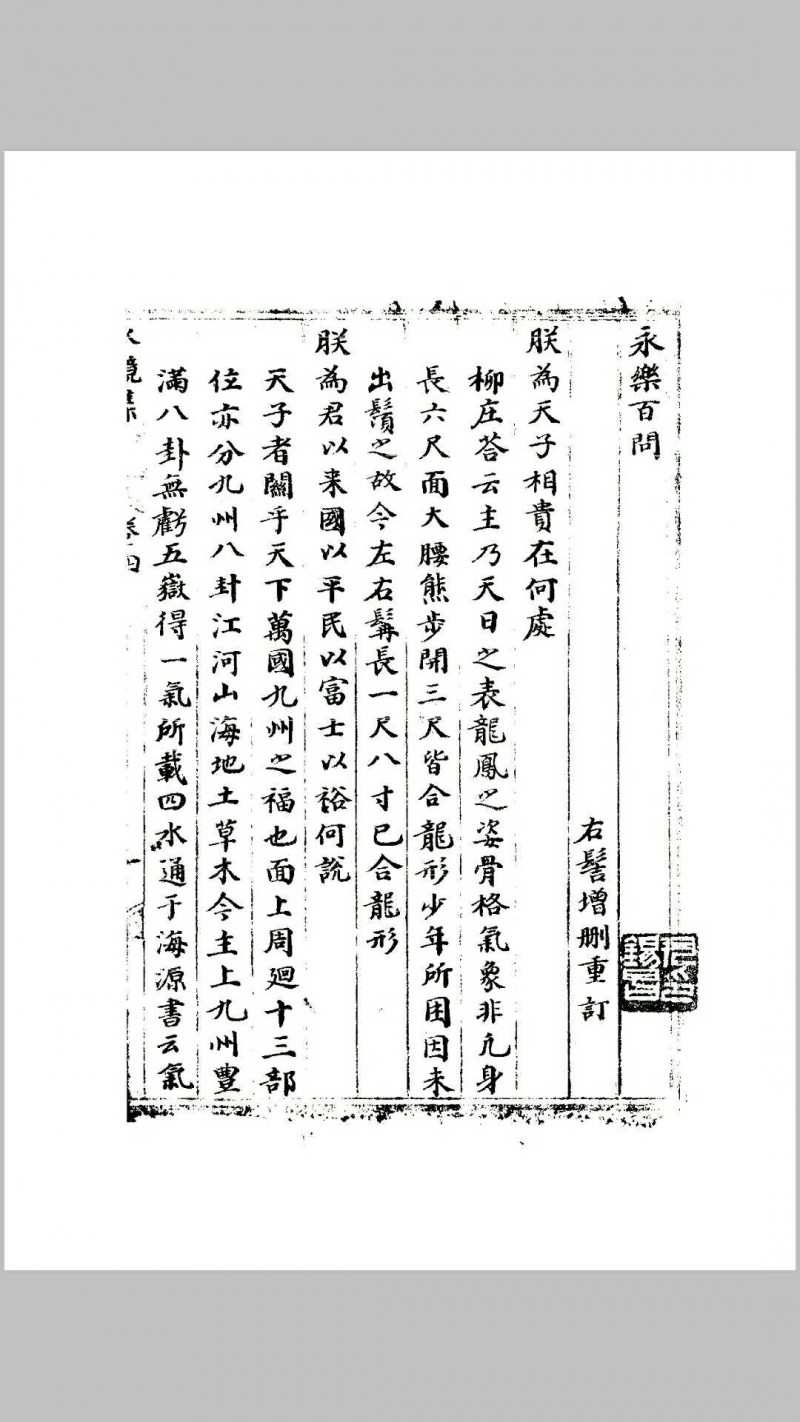 永樂百問
右髻增刪重訂
朕為天子相貴在何處
柳庄荅云主乃天日之表龍鳳之姿骨格氣象非凢身
長六尺面大腰熊步開三尺皆合龍形少年所困因未
出鬚之故今左右髯長一尺八寸已合龍形
朕為君以来國以平民以富士以裕何說
天子者關乎天下萬國九州之福也面上周廻十三部
位亦分九州八卦江河山海地土草木今主上九州豐
滿八卦無虧五嶽得一氣所載四水通于海源書云氣
水鏡集 卷四